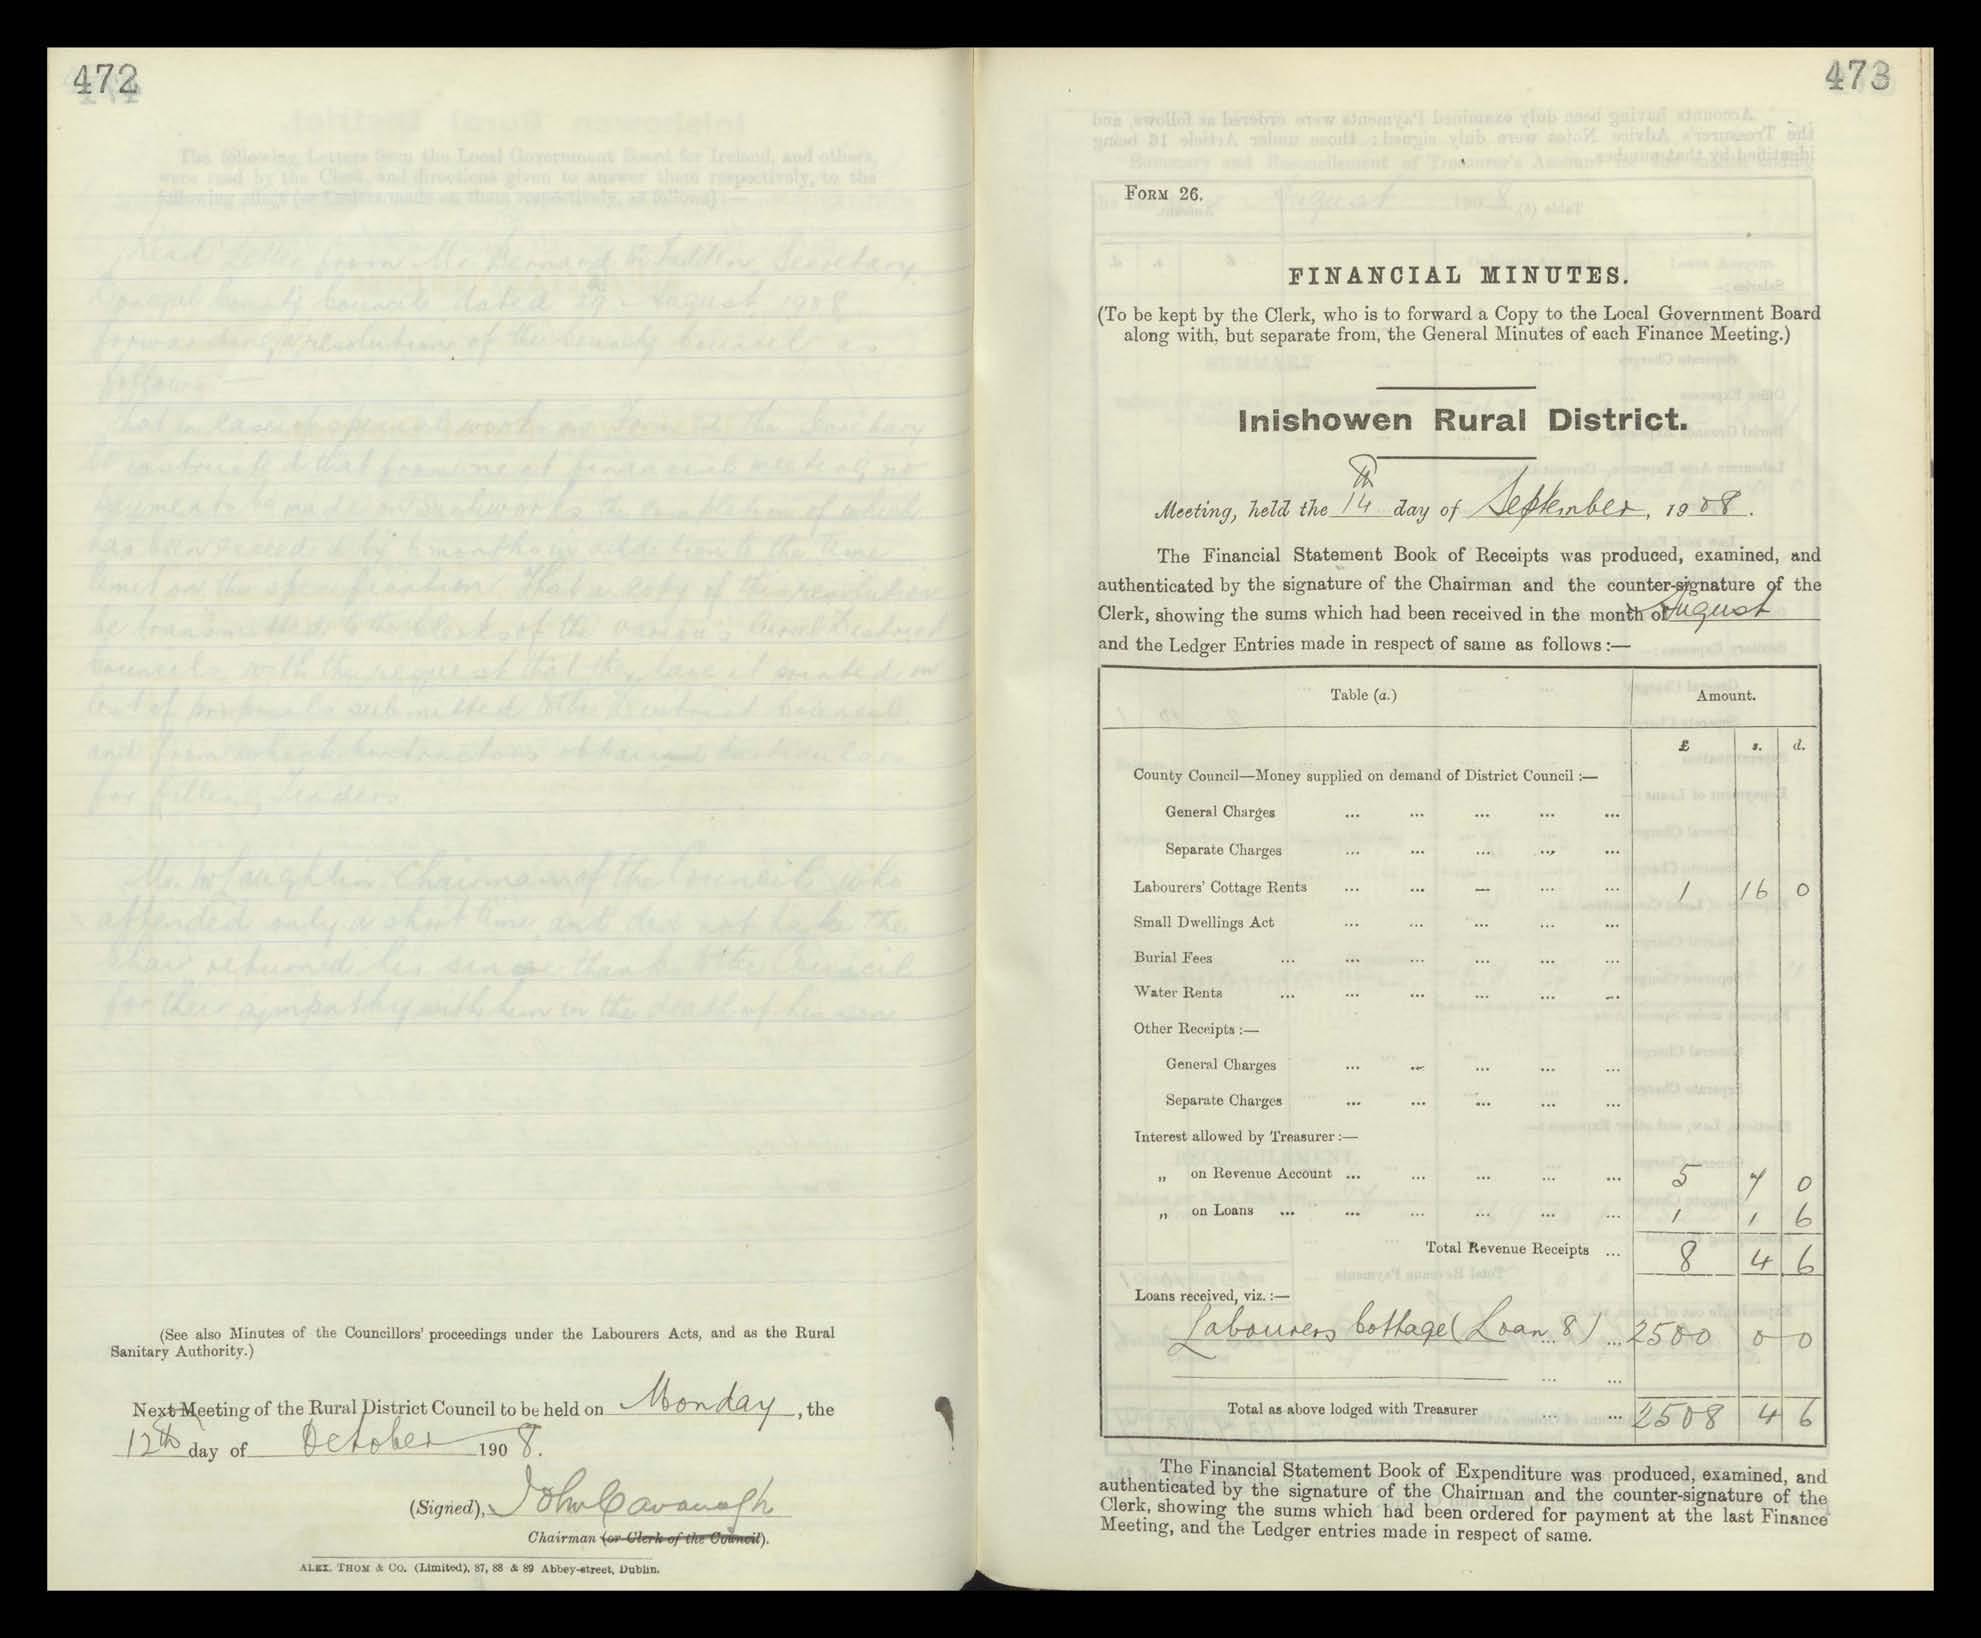 472
Read Letter from Mr. Bernard McFadden Secretary
Donegal County Council dated 29th August 1908
forwarding a resolution of the County Council as
follows:—
That in case of special works the Secretary
be instructed that from the financial meeting no
payments be made on such works the completion of which
has been exceeded by 6 months in addition to the time
limit on the specification. That a copy of this resolution
be transmitted to the Clerks of the various Rural District
Councils with the request that they have it printed on
list of proposals submitted to the District Council
and from which Contractors obtained particulars
for filling Tenders
Mr. McLaughlin Chairman of the Council who
attended only a short time and did not take the
chair returned his sincere thanks to the Council
for their sympathy with him in the death of his son
(See also Minutes of the Councillors' proceedings under the Labourers Acts, and as the Rural
Sanitary Authority.)
Next Meeting of the Rural District Council to be held on Monday, the
12th day of October 1908.
(Signed), John Cavanagh
Chairman (or Clerk of the Council).
ALEX. THOM & CO. (Limited), 87, 88 & 89 Abbey-street, Dublin.
473
FORM 26.
FINANCIAL MINUTES.
(To be kept by the Clerk, who is to forward a Copy to the Local Government Board
along with, but separate from, the General Minutes of each Finance Meeting.)
Inishowen Rural District.
Meeting, held the 14th day of September, 1908.
The Financial Statement Book of Receipts was produced, examined, and
authenticated by the signature of the Chairman and the counter-signature of the
Clerk, showing the sums which had been received in the month of August
and the Ledger Entries made in respect of same as follows:—
Table (a.) Amount.
£ s. d.
County Council—Money supplied on demand of District Council:—
General Charges ... ... ... ... ...
Separate Charges ... ... ... ... ...
Labourers' Cottage Rents ... ... ... ... ... 1 16 0
Small Dwellings Act ... ... ... ... ...
Burial Fees ... ... ... ... ... ...
Water Rents ... ... ... ... ... ...
Other Receipts:—
General Charges ... ... ... ... ...
Separate Charges ... ... ... ... ...
Interest allowed by Treasurer:—
„ on Revenue Account ... ... ... ... ... 5 7 0
„ on Loans ... ... ... ... ... ... 1 1 6
Total Revenue Receipts ... 8 4 6
Loans received, viz.:—
Labourers Cottage (Loan 8) ... ... 2500 0 0
... ...
Total as above lodged with Treasurer ... ... 2508 4 6
The Financial Statement Book of Expenditure was produced, examined, and
authenticated by the signature of the Chairman and the counter-signature of the
Clerk, showing the sums which had been ordered for payment at the last Finance
Meeting, and the Ledger entries made in respect of same.